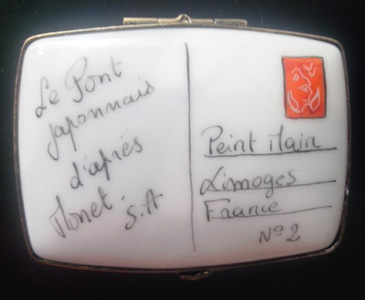 Le Pont
japonnais
d'après
Monet.
S.A
Peint Main
Limoges
France
N° 2